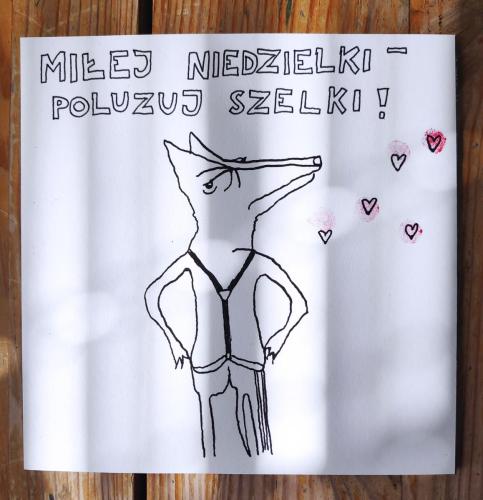 MIŁEJ NIEDZIELKI -
POLUZUJ SZELKI!